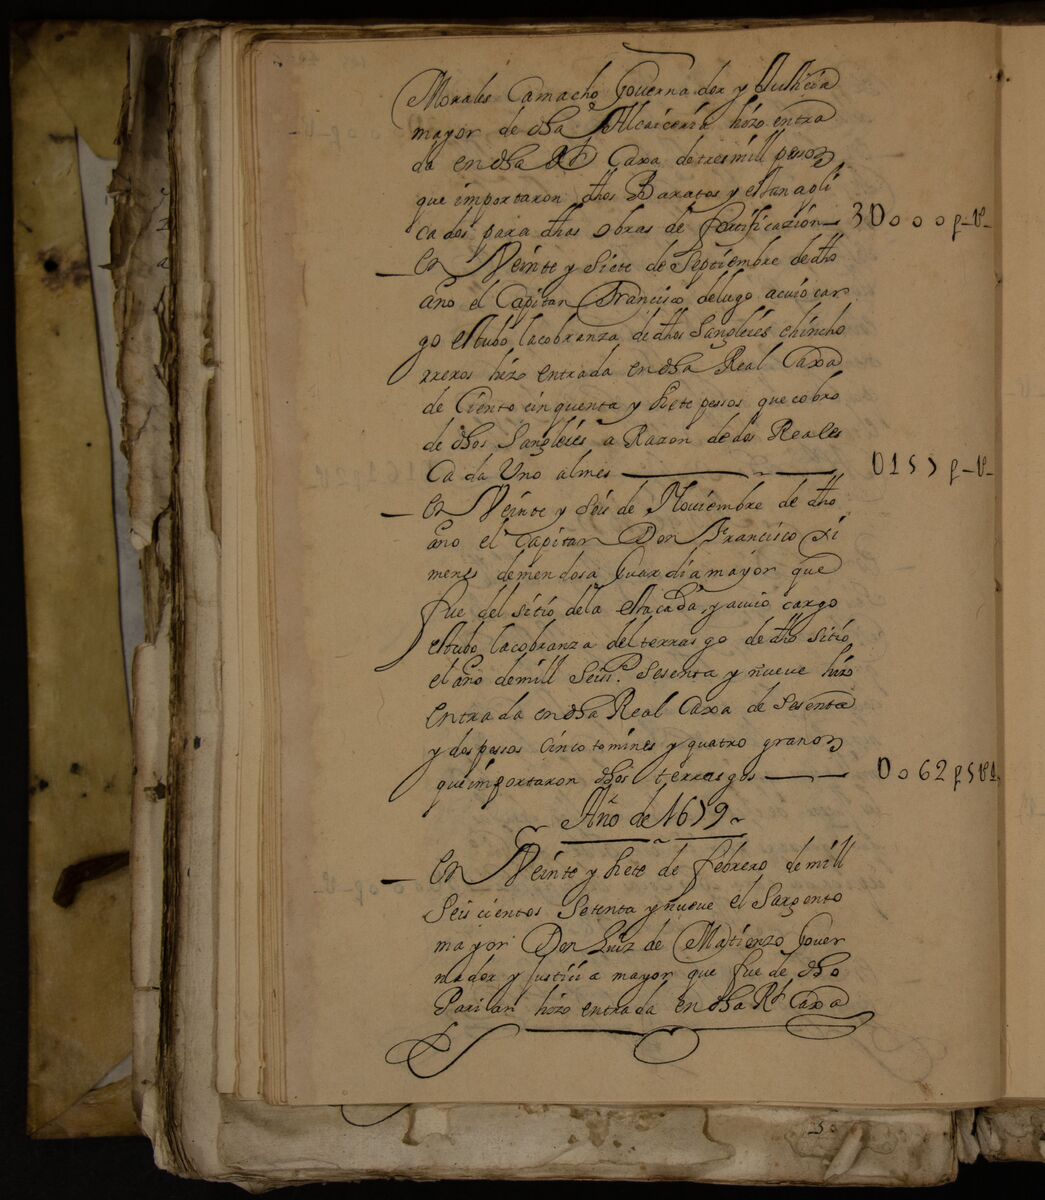 Morales Camacho Governador y Justicia
mayor de dha Alcaiceria hizo entra
da en dha Rl Caxa de tres mill pesos
que importaron dhos Baratos y estan apli
cados para dhas obras de fortificazion — 3D000 p -U-
— En Veinte y Siete de Septiembre de dho
año el Capitan Francisco de lugo acuio car
go estubo la cobranza de dhos Sangleies chincho
rreros hizo entrada en dha Real Caxa
de Ciento cinquenta y siete pessos que cobro
de dhos Sangleies a Razon de dos Reales
Cada Uno al mes — D157 p -U-
— En Veinte y Seis de Noviembre de dho
año el Capitan Don Francisco Xi
menes de mendosa Guardia mayor que
fue del sitio de la estacada, y acuio cargo
estubo la cobranza del terrasgo de dho sitio
el año de mill Seiss. Sesenta y nueve hizo
entrada en dha Real Caxa de Sesenta
y dos pessos Cinco tomines y quatro granos
que importaron dhos terrasgos — D062 p 5 U
Año de 1679
— En Veinte y siete de febrero de mill
Seiscientos Setenta y nueve el Sargento
mayor Don Luiz de Matienzo Gover
nador y justicia mayor que fue de dho
Parian hizo entrada en dha Rl Caxa